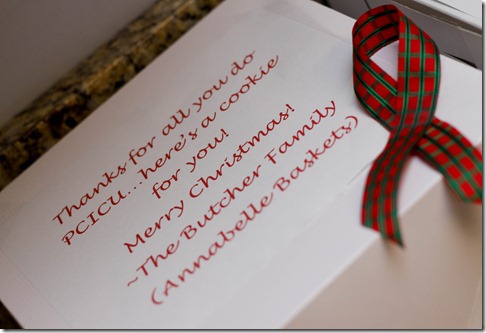 Thanks for all you do
PCICU...here's a cookie
for you!
Merry Christmas!
~The Butcher Family
(Annabelle Baskets)